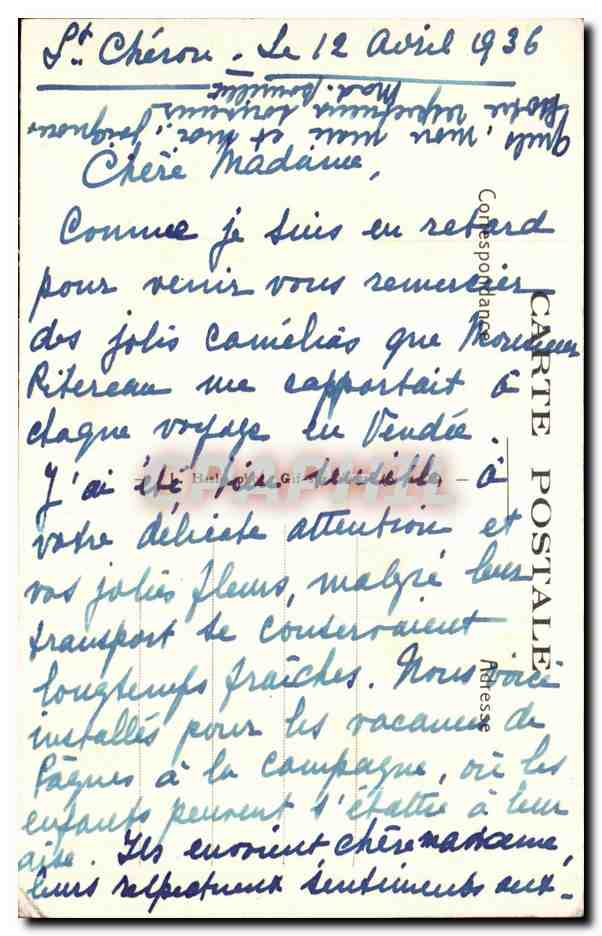 St Chéron - Le 12 Avril 1936
Chère Madame,
Comme je suis en retard
pour venir vous remercier
des jolis camélias que Monsieur
Ritereau me rapportait à
chaque voyage en Vendée.
J'ai été bien sensible à
votre délicate attention et
vos jolies fleurs, malgré leur
transport se conservaient
longtemps fraîches. Nous voici
installés pour les vacances de
Pâques à la campagne, où les
enfants peuvent s'ébattre à leur
aise. Ils envoient chère madame,
leurs respectueux sentiments aux-
quels, mon mari et moi, joignons
notre souvenir
Correspondance
CARTE POSTALE
Adresse